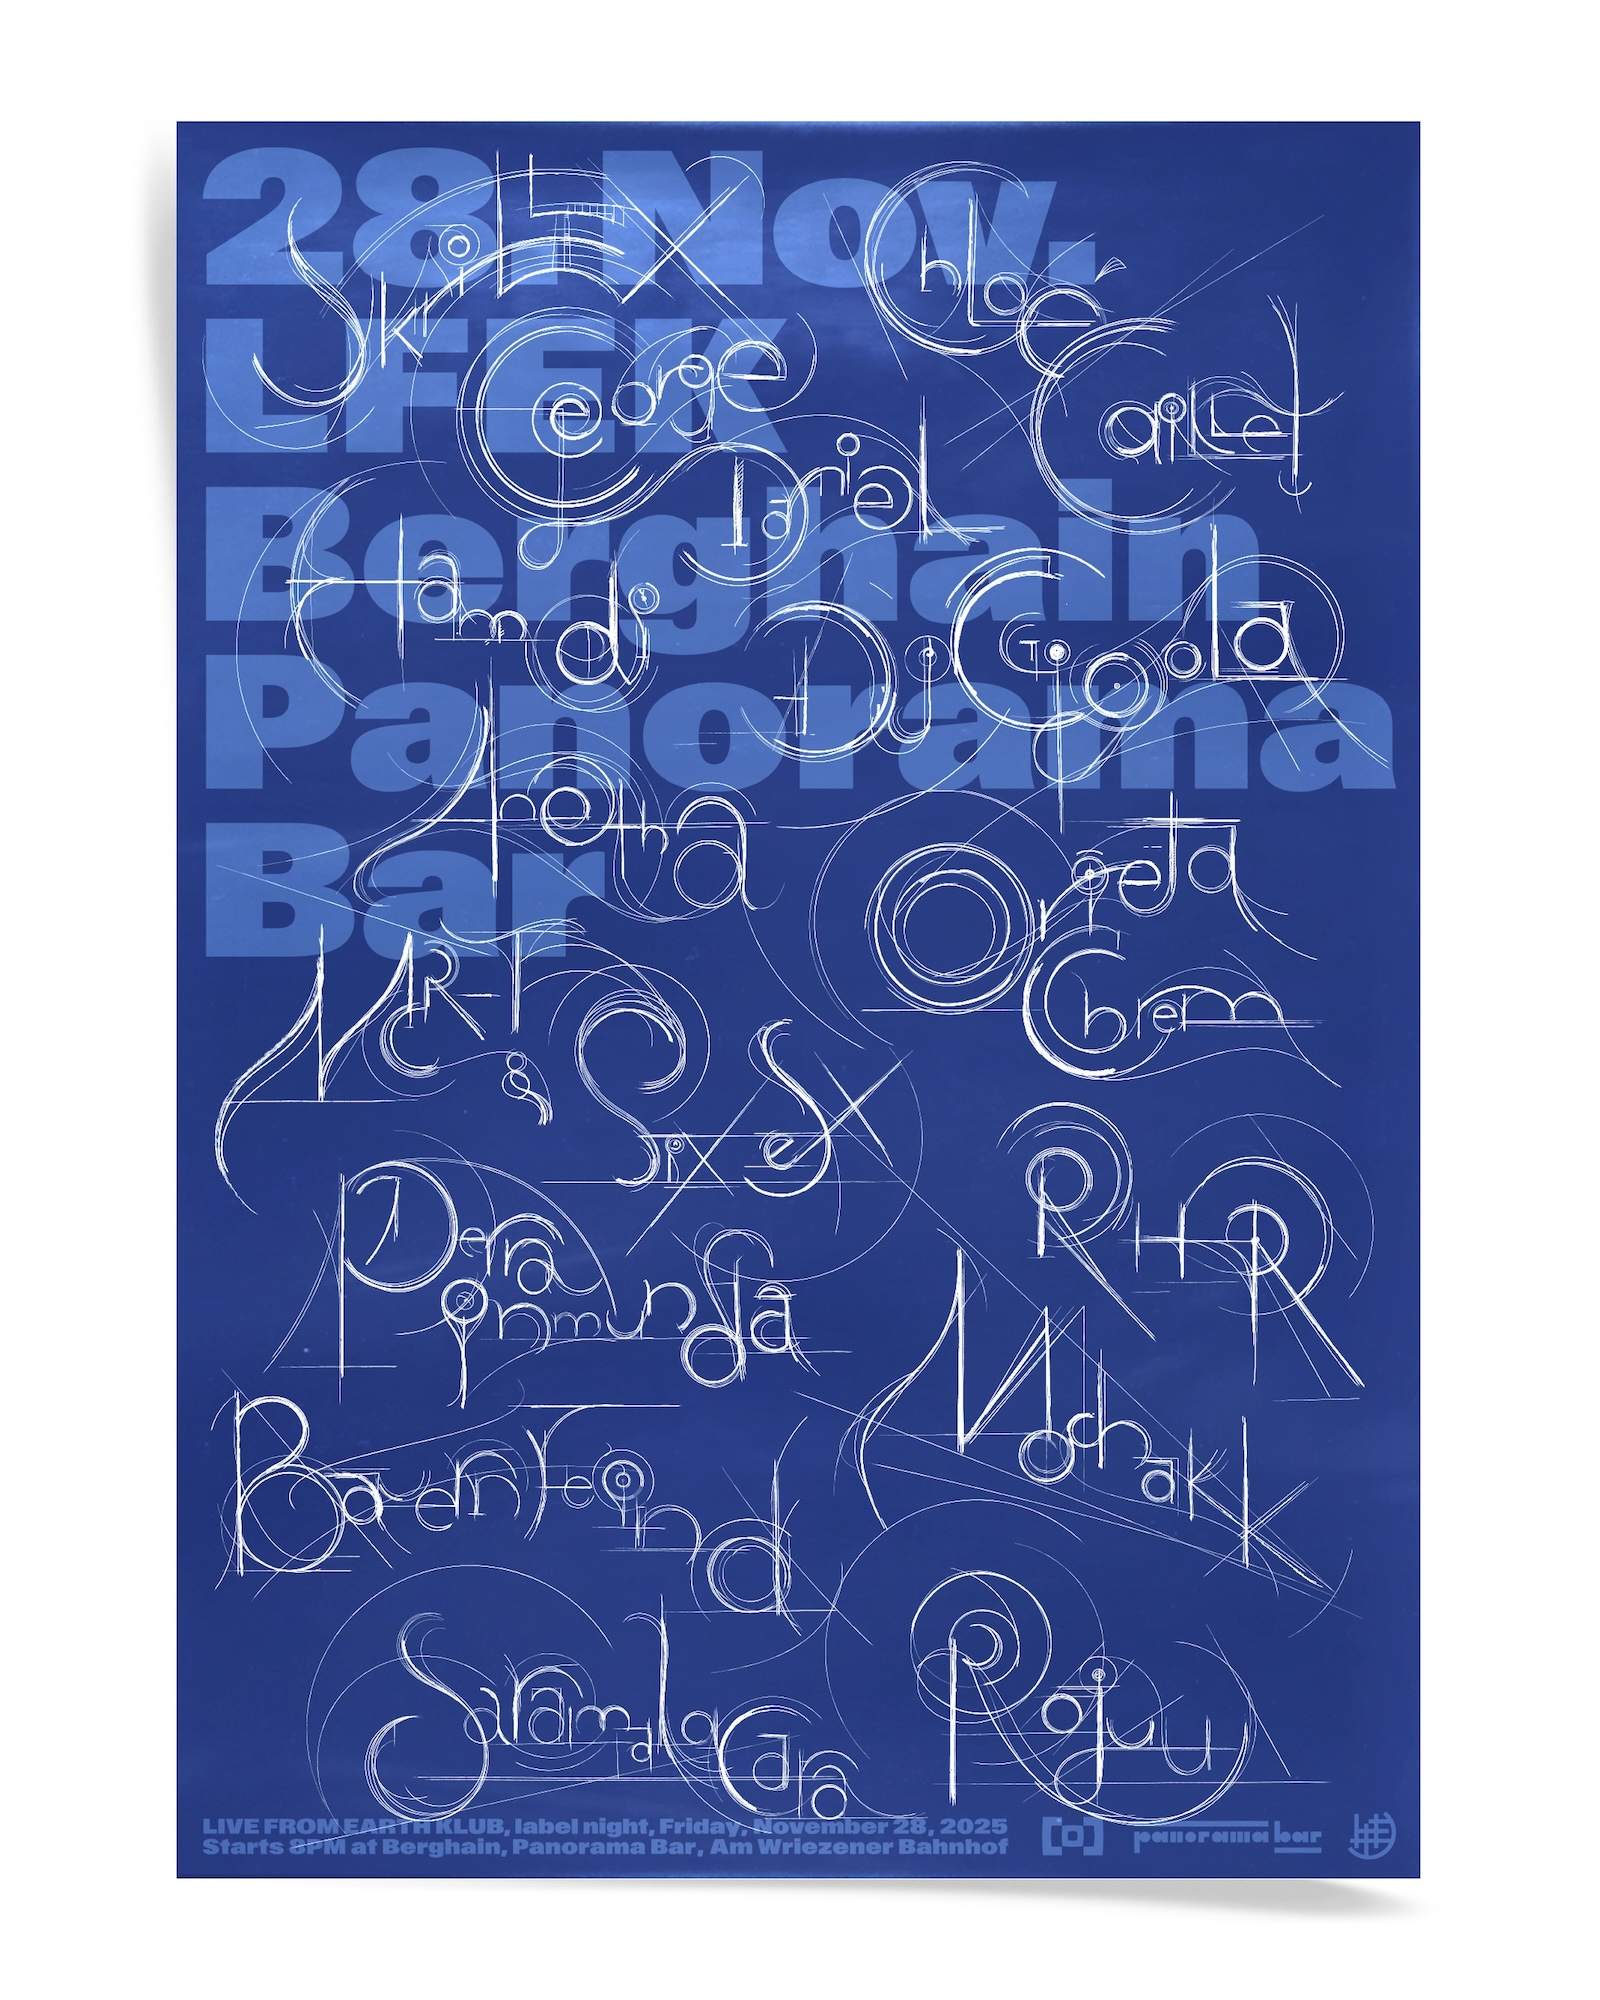 28 Nov.
LFEK
Berghain
Panorama
Bar
Skrillex
Chloé
Caillet
George
Daniel
Hamdi
DJ Gigola
Anetha
Orieta
Chrem
MCR-T
& Six Sex
Perra
Inmunda
RHR
Mochakk
Bauernfeind
Saramalacara
Rojuu
LIVE FROM EARTH KLUB, label night, Friday, November 28, 2025
Starts 8PM at Berghain, Panorama Bar, Am Wriezener Bahnhof
panorama bar